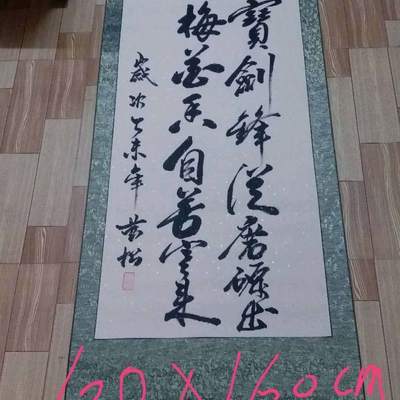 寶劍鋒從磨礪出
梅花香自苦寒來
歲次乙未年
X160cm